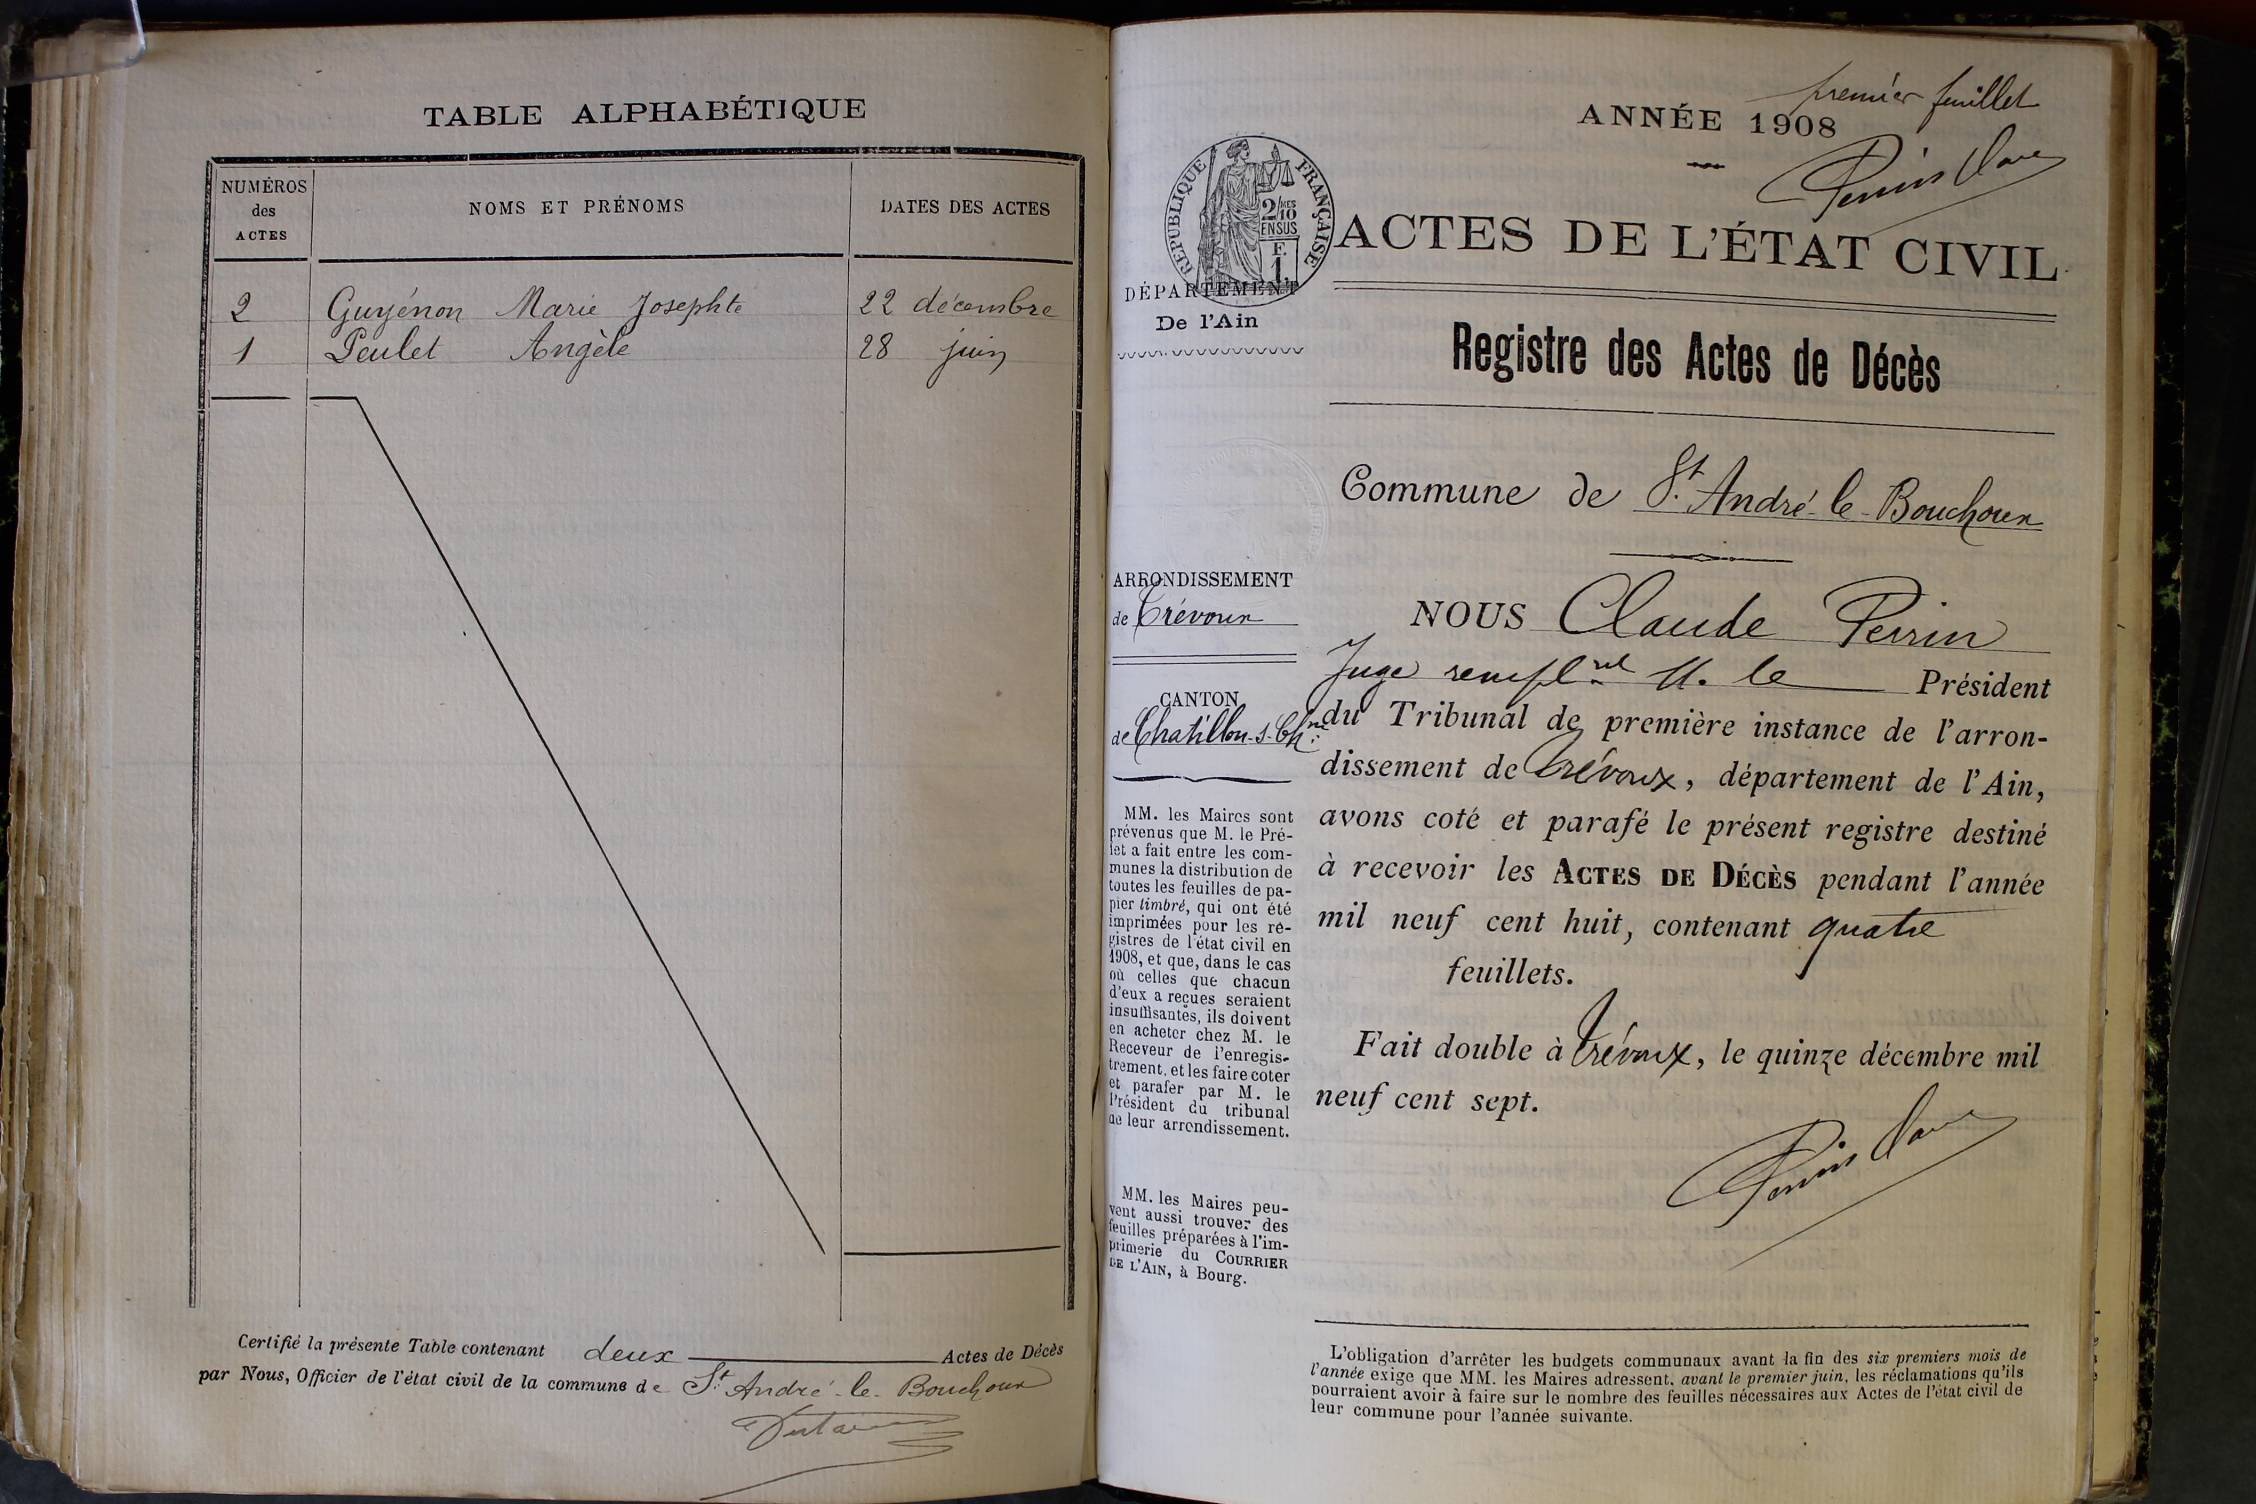 TABLE ALPHABÉTIQUE
NUMÉROS
des
ACTES
NOMS ET PRÉNOMS
DATES DES ACTES
2 Guyénon Marie Josephte 22 décembre
1 Peulet Angèle 28 juin
Certifié la présente Table contenant deux Actes de Décès
par Nous, Officier de l'état civil de la commune de St André-le-Bouchoux
premier feuillet
ANNÉE 1908
RÉPUBLIQUE FRANÇAISE
2/10 MES
EN SUS
F.
1.
ACTES DE L'ÉTAT CIVIL
DÉPARTEMENT
De l'Ain
Registre des Actes de Décès
Commune de St André-le-Bouchoux
ARRONDISSEMENT
de Trévoux
CANTON
de Chatillon-s-Chne
MM. les Maires sont
prévenus que M. le Pré-
fet a fait entre les com-
munes la distribution de
toutes les feuilles de pa-
pier timbré, qui ont été
imprimées pour les re-
gistres de l'état civil en
1908, et que, dans le cas
où celles que chacun
d'eux a reçues seraient
insuffisantes, ils doivent
en acheter chez M. le
Receveur de l'enregis-
trement, et les faire coter
et parafer par M. le
Président du tribunal
de leur arrondissement.
MM. les Maires peu-
vent aussi trouver des
feuilles préparées à l'im-
primerie du COURRIER
DE L'AIN, à Bourg.
NOUS Claude Perrin
Juge remplnt M. le Président
du Tribunal de première instance de l'arron-
dissement de Trévoux, département de l'Ain,
avons coté et parafé le présent registre destiné
à recevoir les ACTES DE DÉCÈS pendant l'année
mil neuf cent huit, contenant quatre
feuillets.
Fait double à Trévoux, le quinze décembre mil
neuf cent sept.
L'obligation d'arrêter les budgets communaux avant la fin des six premiers mois de
l'année exige que MM. les Maires adressent, avant le premier juin, les réclamations qu'ils
pourraient avoir à faire sur le nombre des feuilles nécessaires aux Actes de l'état civil de
leur commune pour l'année suivante.